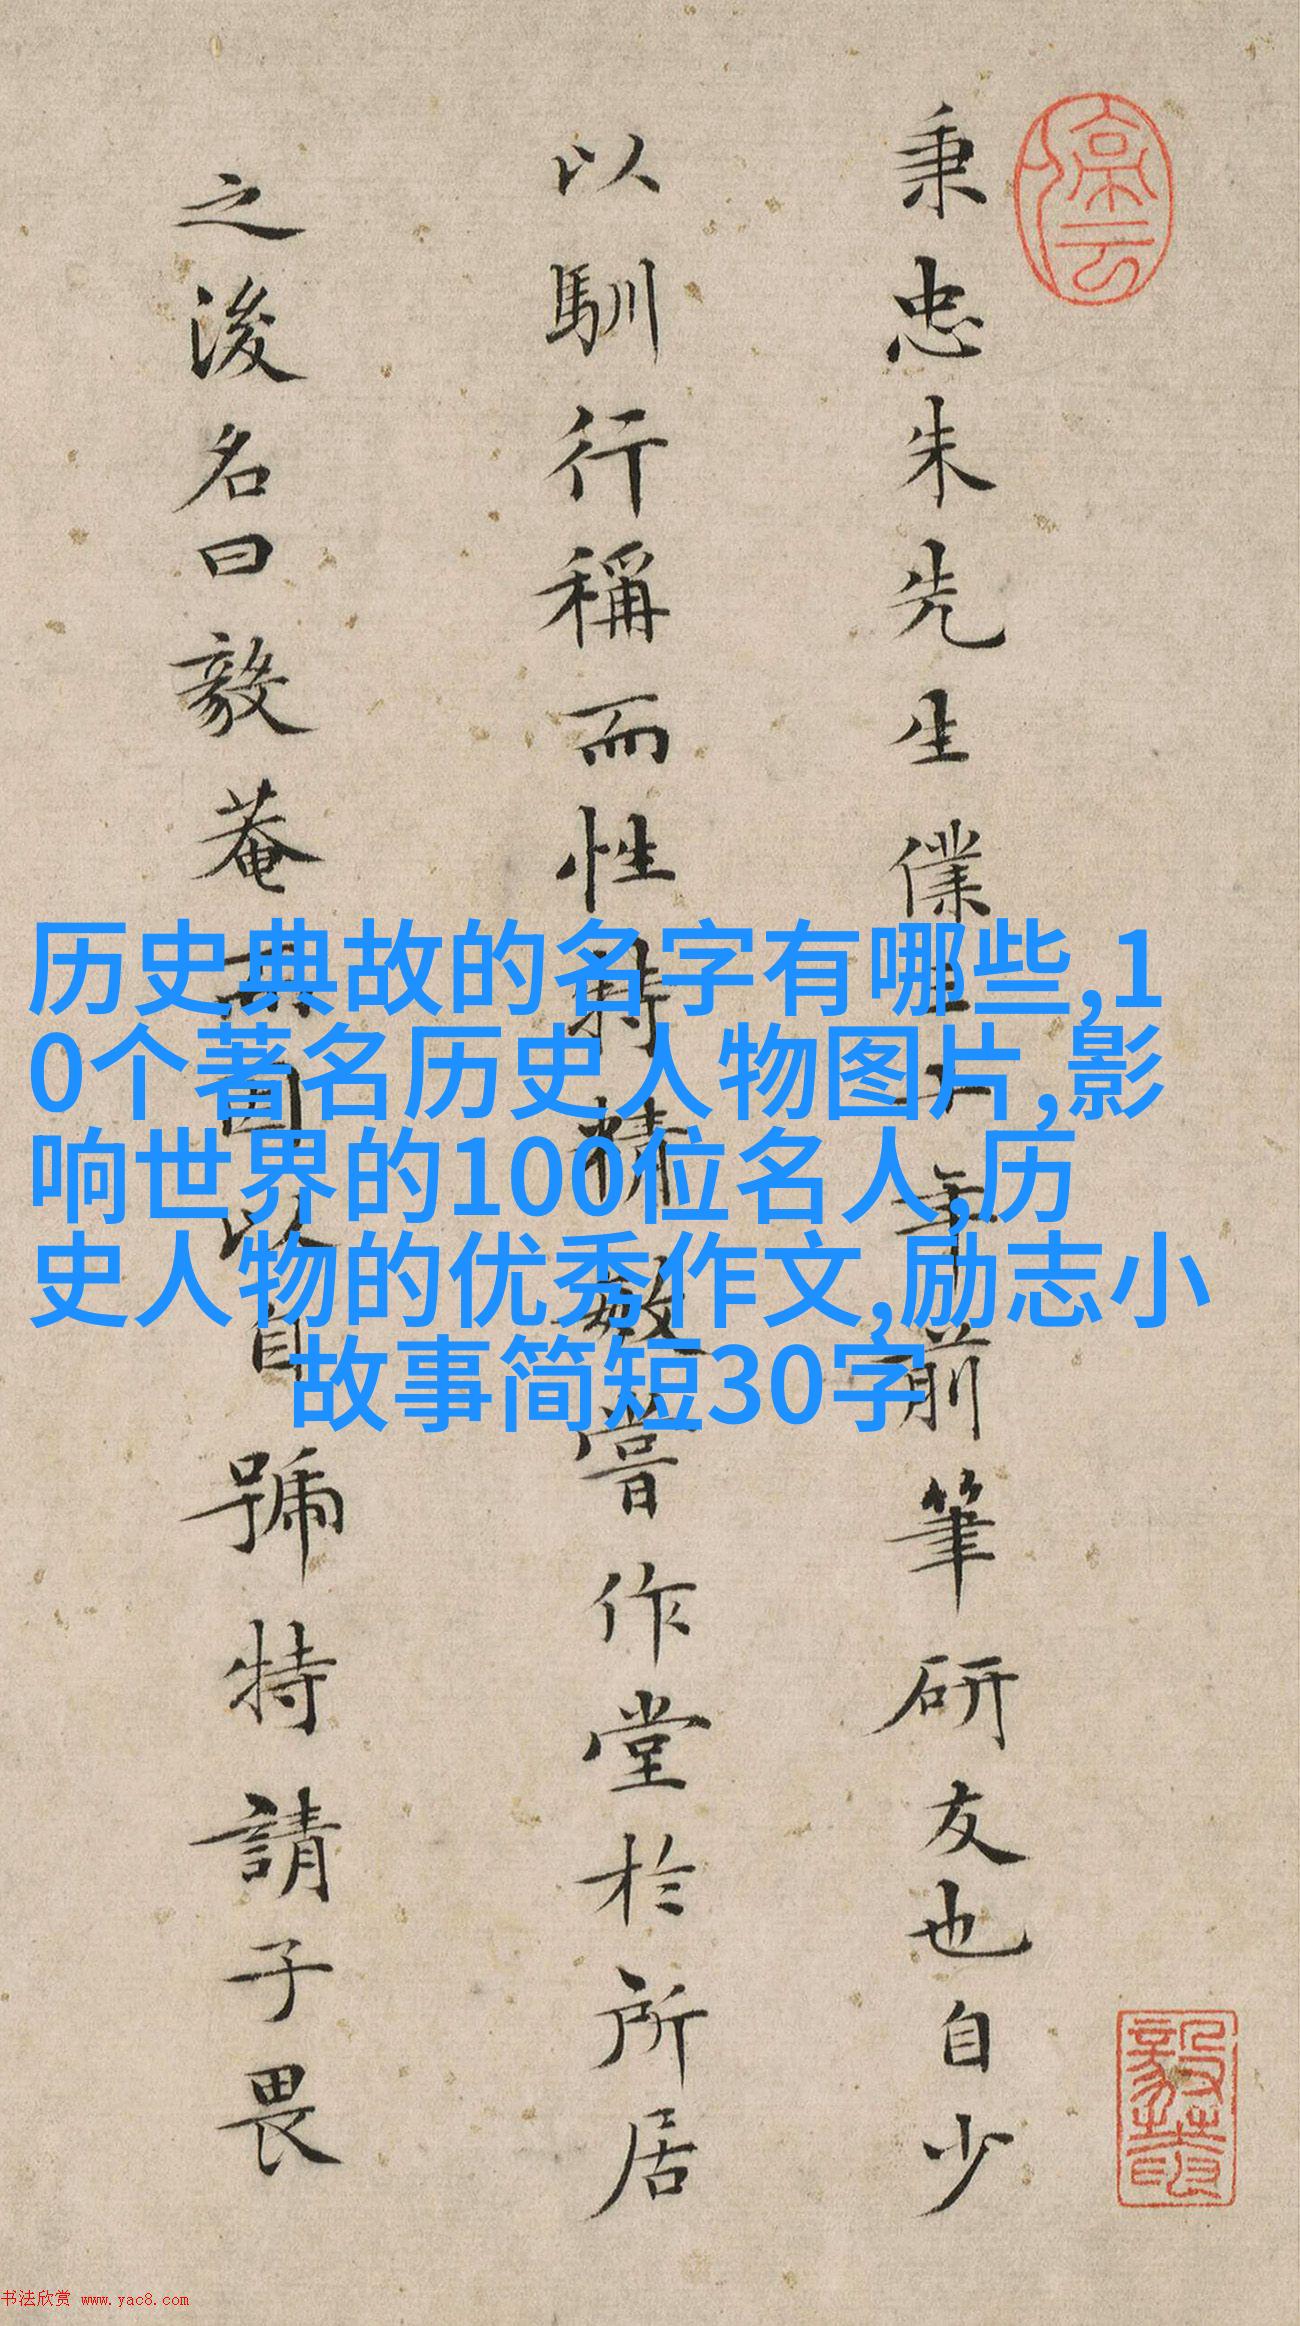 历史典故的名字有哪些,1
0个著名历史人物图片,影
响世界的100位名人,历
史人物的优秀作文,励志小
故事简短30字
秉忠朱先生僕三十年前筆研友也自少
以馴行稱而性特精敏嘗作堂於所居
之後名曰毅菴因以自號特請子畏
书法欣赏 www.yac8.com